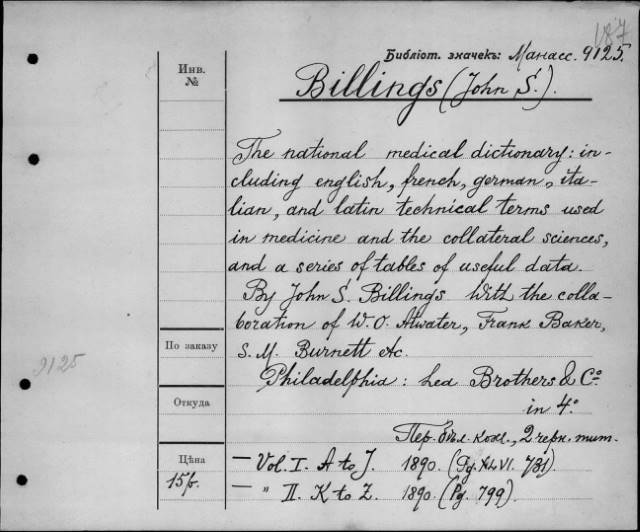 187
Библіот. значекъ: Манасс. 9125.
Инв. №
Billings (John S.).
The national medical dictionary: in-
cluding english, french, german, ita-
lian, and latin technical terms used
in medicine and the collateral sciences,
and a series of tables of useful data.
By John S. Billings With the colla-
boration of W. O. Atwater, Frank Baker,
По заказу
S. M. Burnett etc.
9125
Philadelphia: Lea Brothers & Co
Откуда
in 4°
Пер. бѣл. кож., 2 черн. тит.
Цѣна
— Vol. I. A to J. 1890. (Pg. XLVI. 731)
15р.
— " II. K to Z. 1890. (Pg. 799).